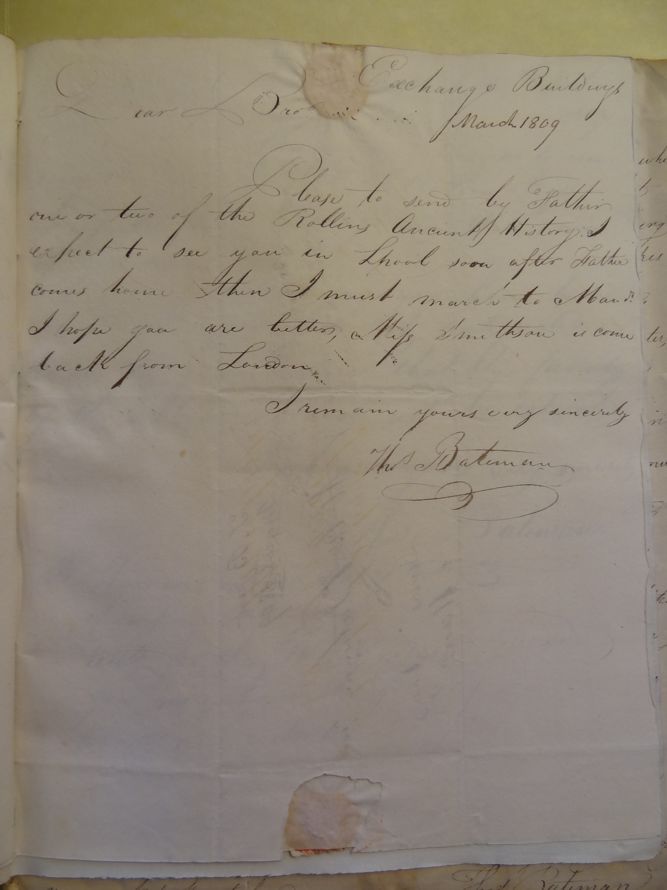 Exchange Buildings
Dear Bro
March 1809
Please to send by Father
one or two of the Rollins Ancient History. I
expect to see you in Lpool soon after Father
comes home then I must march to Manr.
I hope you are better, Miss Smithson is come
back from London,
I remain yours very sincerely
Thos Bateman
Thos Bateman